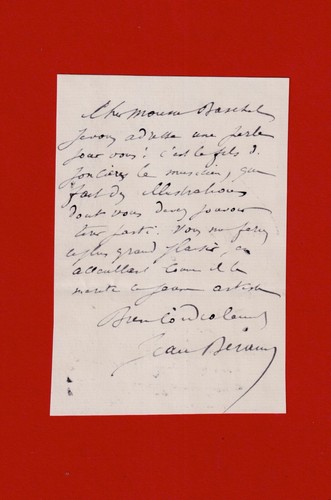 Cher Monsieur Baschet
Je vous adresse une perle
pour vous! c'est le fils de
Joncières le musicien, qui
fait des illustrations
dont vous devez pouvoir
tirer parti. Vous me ferez
le plus grand plaisir, en
accueillant comme il le
mérite ce jeune artiste
Bien Cordialement
Jean Béraud